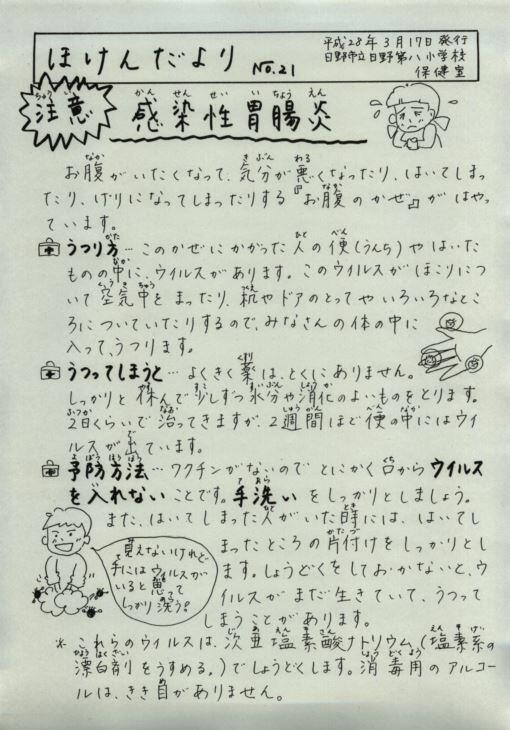 ほけんだより No.21
平成28年3月17日発行
日野市立日野第八小学校
保健室
注意 感染性胃腸炎
お腹がいたくなって、気分が悪くなったり、はいてしまっ
たり、げりになってしまったりする『お腹のかぜ』がはやっ
ています。
うつり方…このかぜにかかった人の便(うんち)やはいた
ものの中に、ウイルスがあります。このウイルスがほこりにつ
いて空気中をまったり、机やドアのとってやいろいろなとこ
ろについていたりするので、みなさんの体の中に
入って、うつります。
うつってしまうと…よくきく薬は、とくにありません。
しっかりと休んで少しずつ水分や消化のよいものをとります。
2日くらいで治ってきますが、2週間ほど便の中にはウイ
ルスが出ています。
予防方法…ワクチンがないのでとにかく口からウイルス
を入れないことです。手洗いをしっかりとしましょう。
また、はいてしまった人がいた時には、はいてし
まったところの片付けをしっかりとし
ます。しょうどくをしておかないと、ウ
イルスがまだ生きていて、うつって
しまうことがあります。
見えないけれど
手にはウイルスが
いると思って
しっかり洗う。
* これらのウイルスは、次亜塩素酸ナトリウム(塩素系の
漂白剤をうすめる。)でしょうどくします。消毒用のアルコー
ルは、きき目がありません。